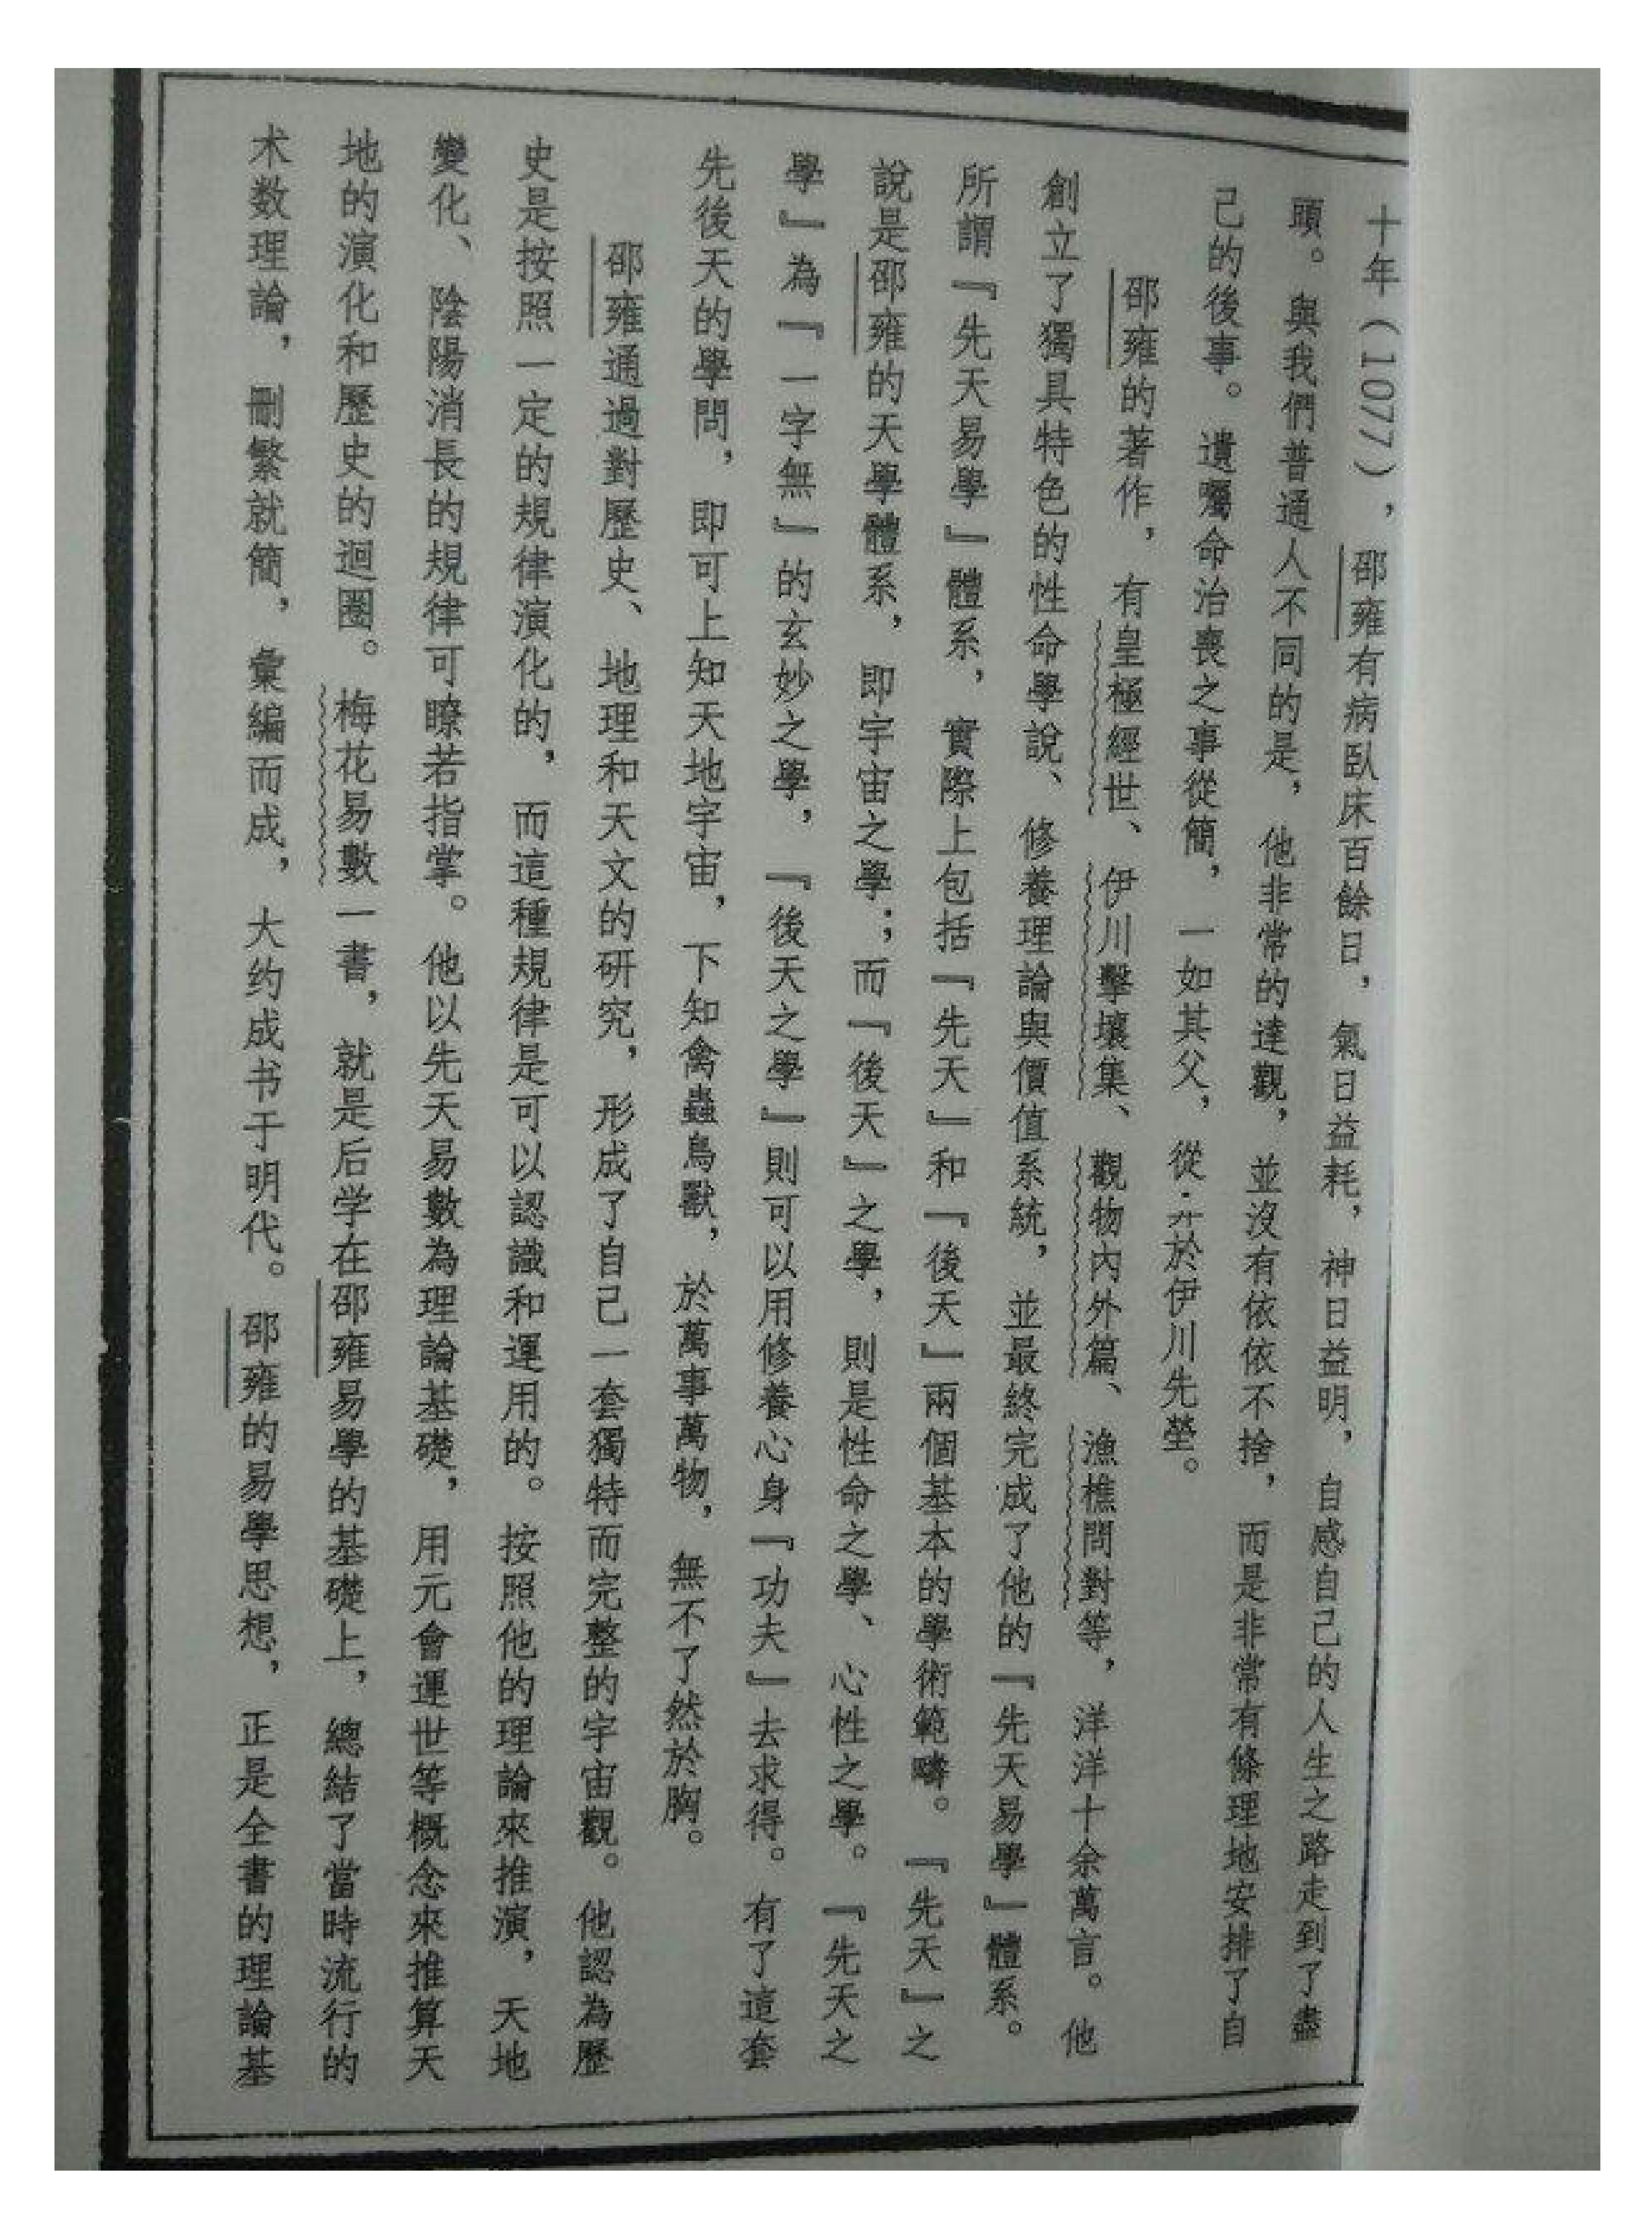 十年（1077），邵雍有病臥床百餘日，氣日益耗，神日益明，自感自己的人生之路走到了盡
頭。與我們普通人不同的是，他非常的達觀，並沒有依依不捨，而是非常有條理地安排了自
己的後事。遺囑命治喪之事從簡，一如其父，從於伊川先塋。
邵雍的著作，有皇極經世、伊川擊壤集、觀物內外篇、漁樵問對等，洋洋十余萬言。他
創立了獨具特色的性命學說、修養理論與價值系統，並最終完成了他的『先天易學』體系。
所謂『先天易學』體系，實際上包括『先天』和『後天』兩個基本的學術範疇。『先天』之
說是邵雍的天學體系，即宇宙之學；而『後天』之學，則是性命之學、心性之學。『先天之
學』為『一字無』的玄妙之學，『後天之學』則可以用修養心身『功夫』去求得。有了這套
先後天的學問，即可上知天地宇宙，下知禽蟲鳥獸，於萬事萬物，無不了然於胸。
邵雍通過對歷史、地理和天文的研究，形成了自己一套獨特而完整的宇宙觀。他認為歷
史是按照一定的規律演化的，而這種規律是可以認識和運用的。按照他的理論來推演，天地
變化、陰陽消長的規律可瞭若指掌。他以先天易數為理論基礎，用元會運世等概念來推算天
地的演化和歷史的迴圈。梅花易數一書，就是后学在邵雍易學的基礎上，總結了當時流行的
术数理論，刪繁就簡，彙編而成，大约成书于明代。邵雍的易學思想，正是全書的理論基